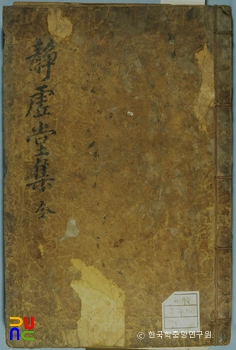 靜虛堂集 全
© 한국학중앙연구원